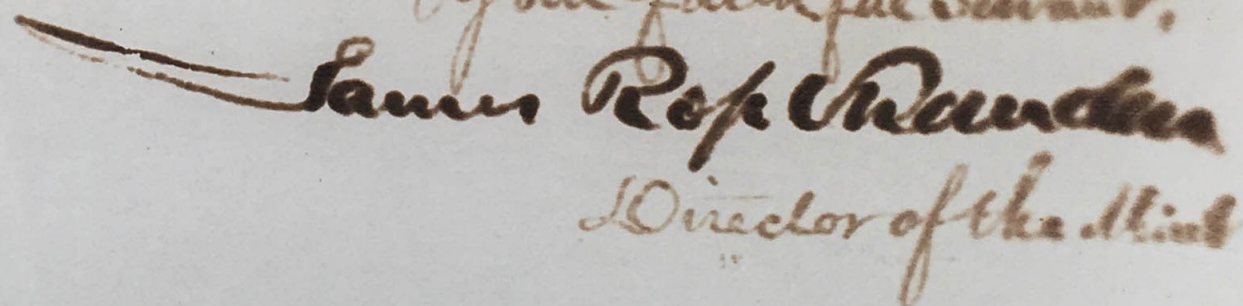 your faithful Servant,
James Ross Snowden
Director of the Mint